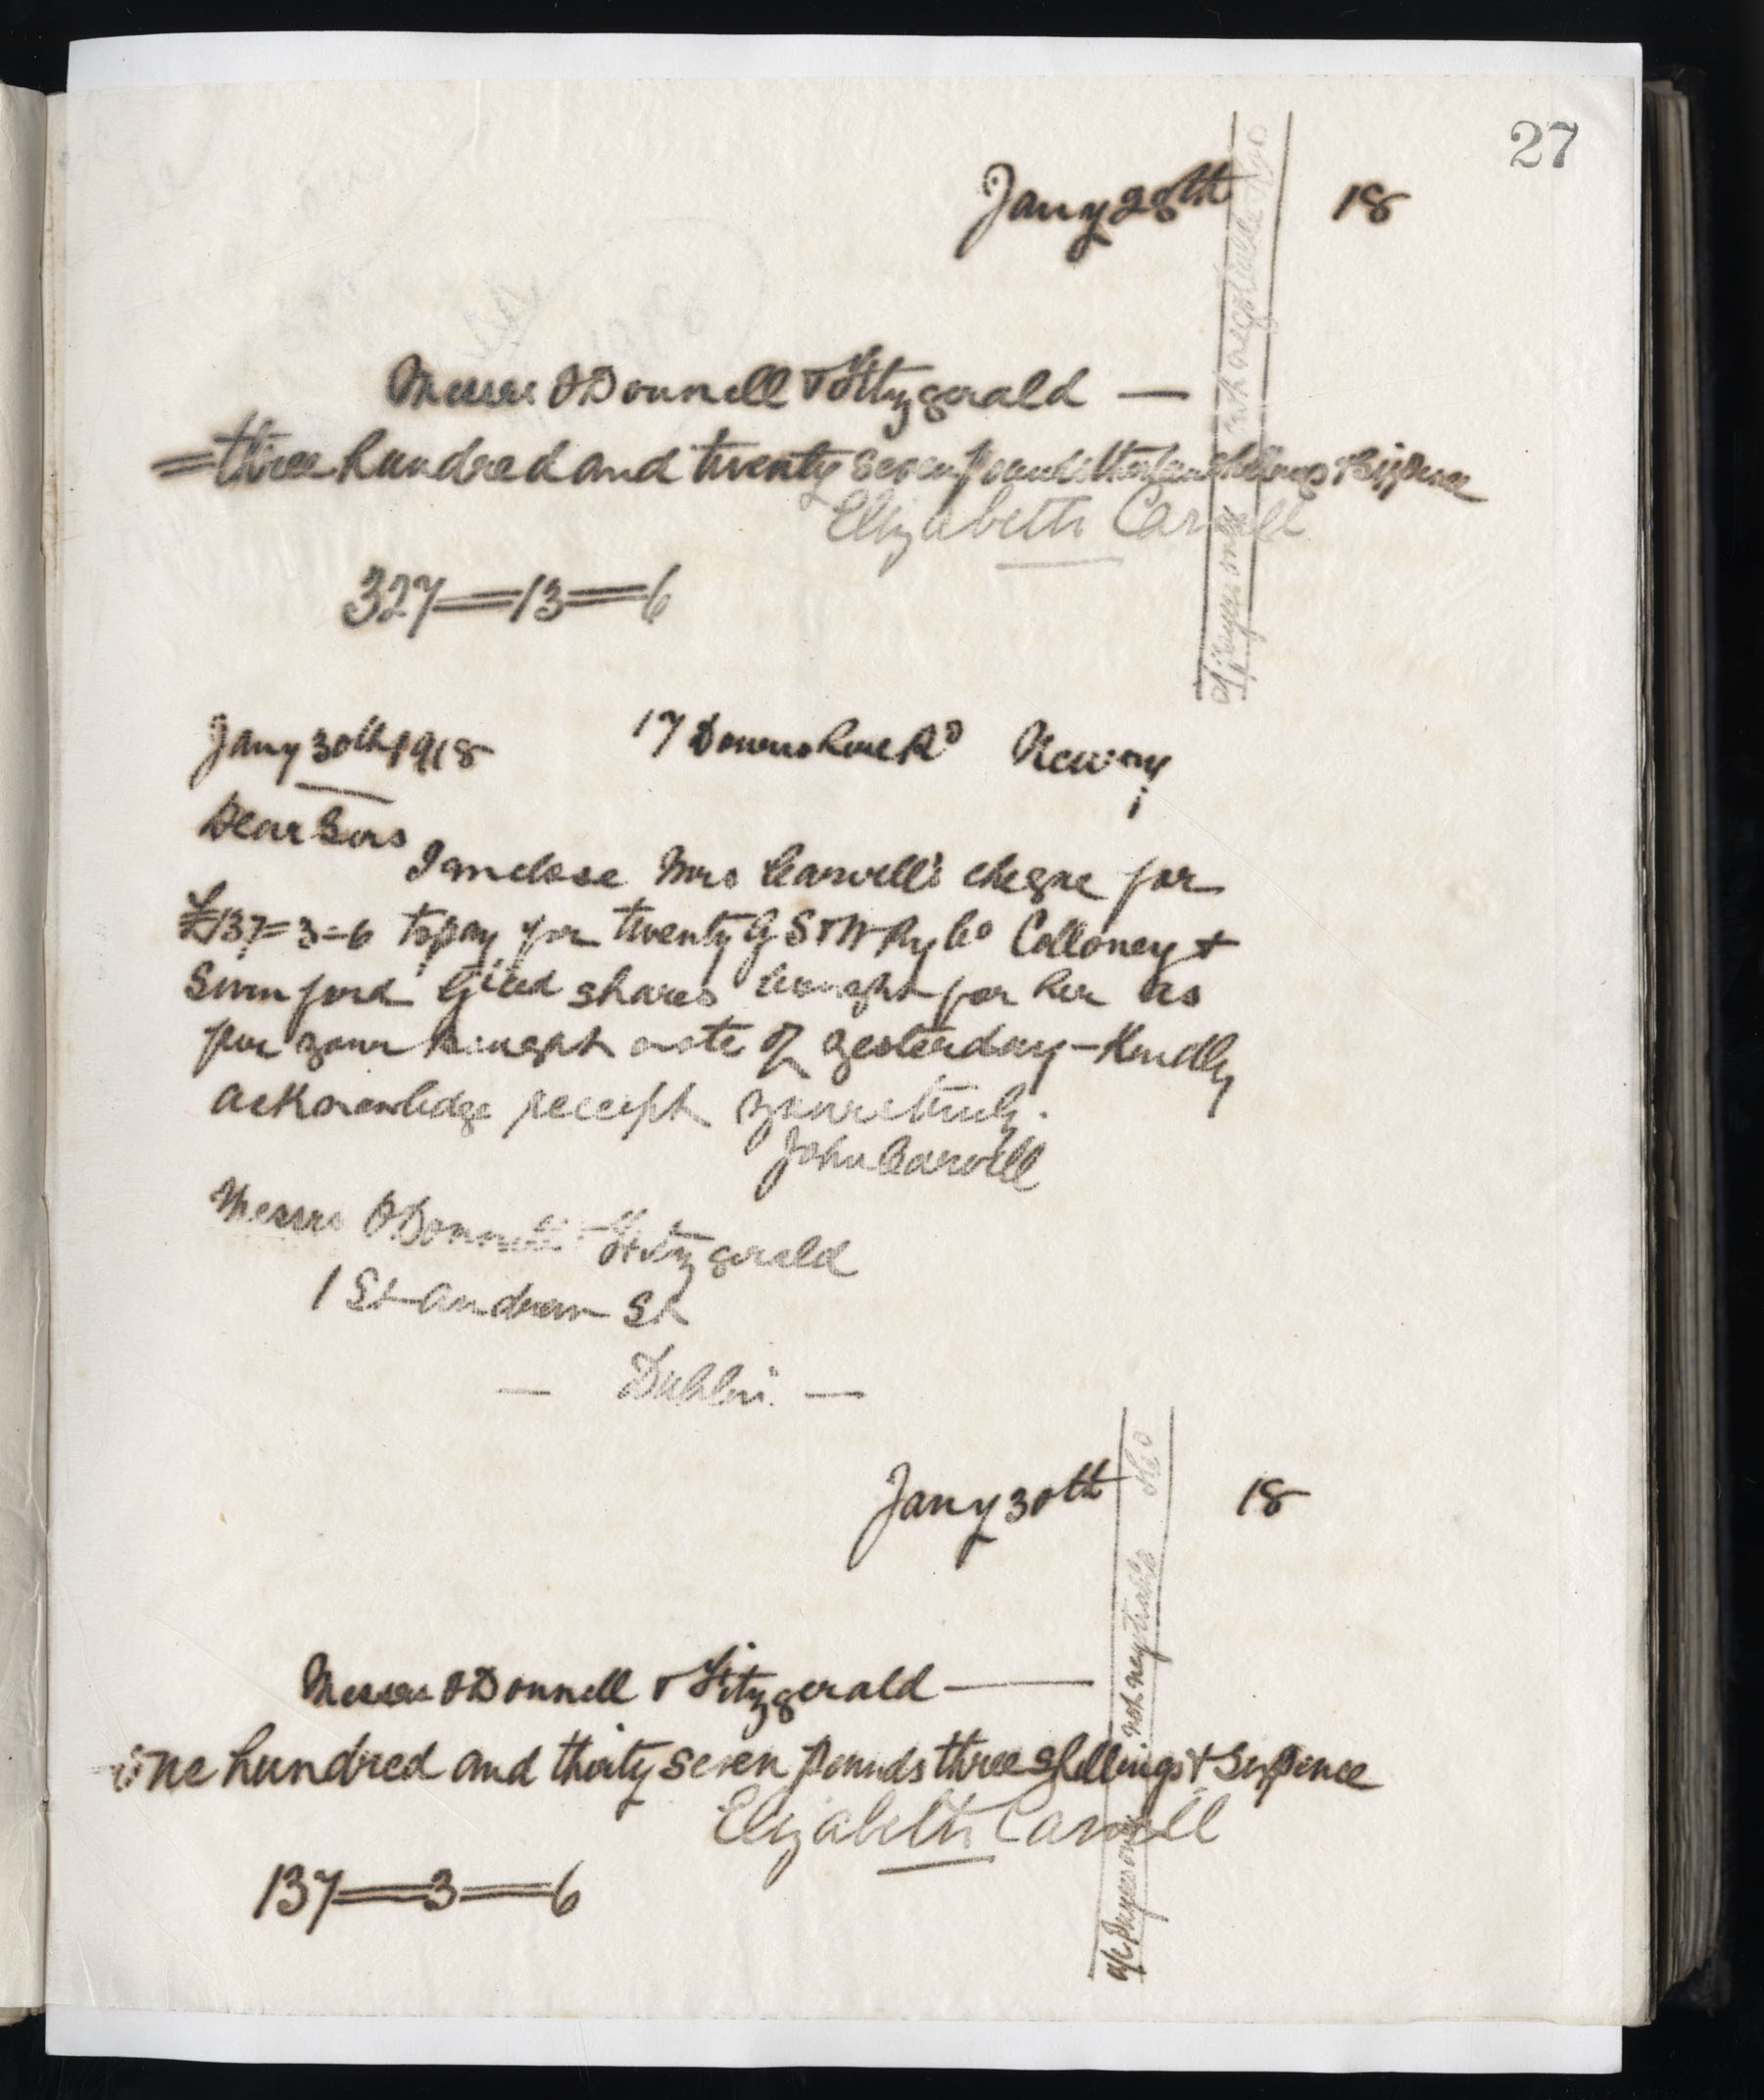 27
Jany 28th 18
Messrs O'Donnell & Fitzgerald —
= three hundred and twenty seven pounds thirteen shillings & Sixpence
Elizabeth Carvill
327=13=6
a/c payees only not negotiable & Co
Jany 30th 1918 17 Downshire Rd Newry
Dear Sirs
I enclose Mrs Carvill's cheque for
£137=3=6 to pay for twenty G S & W Ry Co Colloney &
Swinford Gteed shares bought for her as
per your bought note of yesterday - Kindly
acknowledge receipt yours truly.
John Carvill
Messrs O'Donnell Fitzgerald
1 St Andrew St
— Dublin. —
Jany 30th 18
Messrs O'Donnell & Fitzgerald —
one hundred and thirty seven pounds three shillings & Sixpence
Elizabeth Carvill
137=3=6
a/c payees only not negotiable & Co